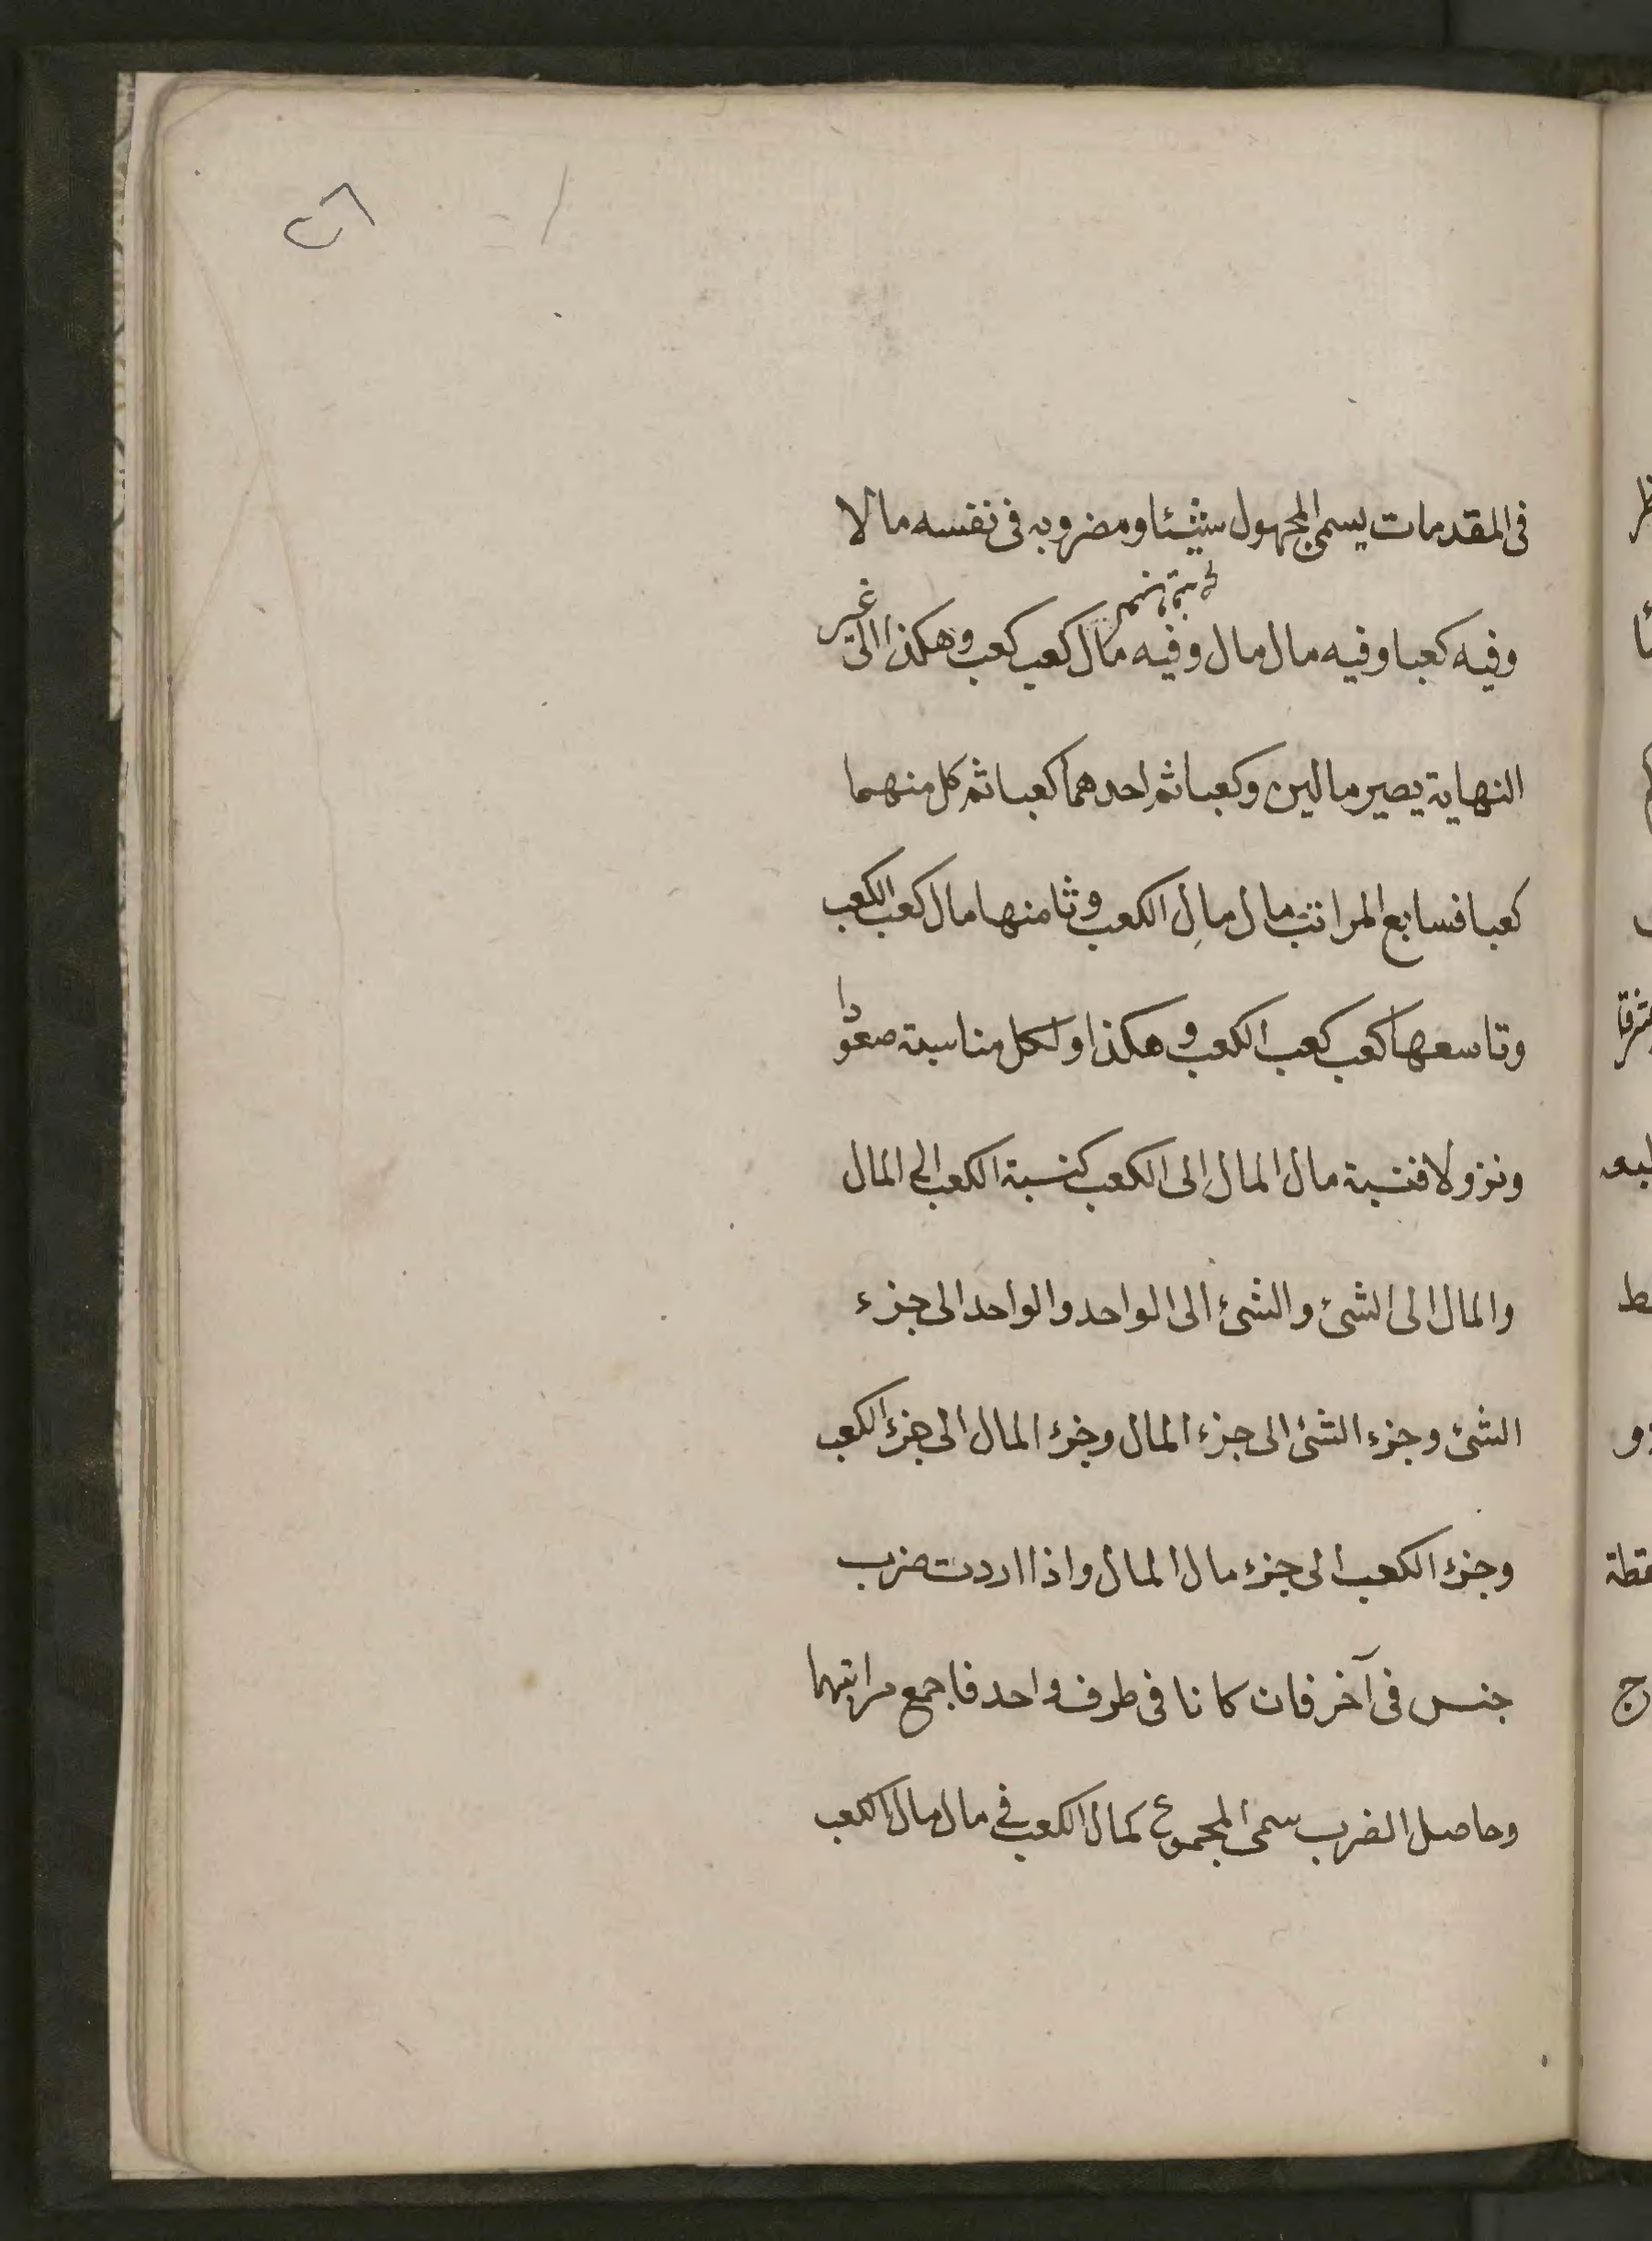 ٢٦
فى المقدمات يسمى المجهول شيئا ومضروبه فى نفسه مالا
وفيه كعبا وفيه مال مال وفيه مال كعب كعب وهكذا الى غير
النهاية يصير مالين وكعبا ثم احدهما كعبا ثم كل منهما
كعبا فسابع المراتب مال مال الكعب وثامنها مال كعب الكعب
وتاسعها كعب كعب الكعب وهكذا ولكل مناسبة صعودا
ونزولا فنسبة مال المال الى الكعب كنسبة الكعب الى المال
والمال الى الشئ والشئ الى الواحد والواحد الى جزء
الشئ وجزء الشئ الى جزء المال وجزء المال الى جزء الكعب
وجزء الكعب الى جزء مال المال واذا اردت ضرب
جنس فى آخر فان كانا فى طرف واحد فاجمع مراتبهما
وحاصل الضرب سمى المجموع كمال الكعب فى مال مال الكعب